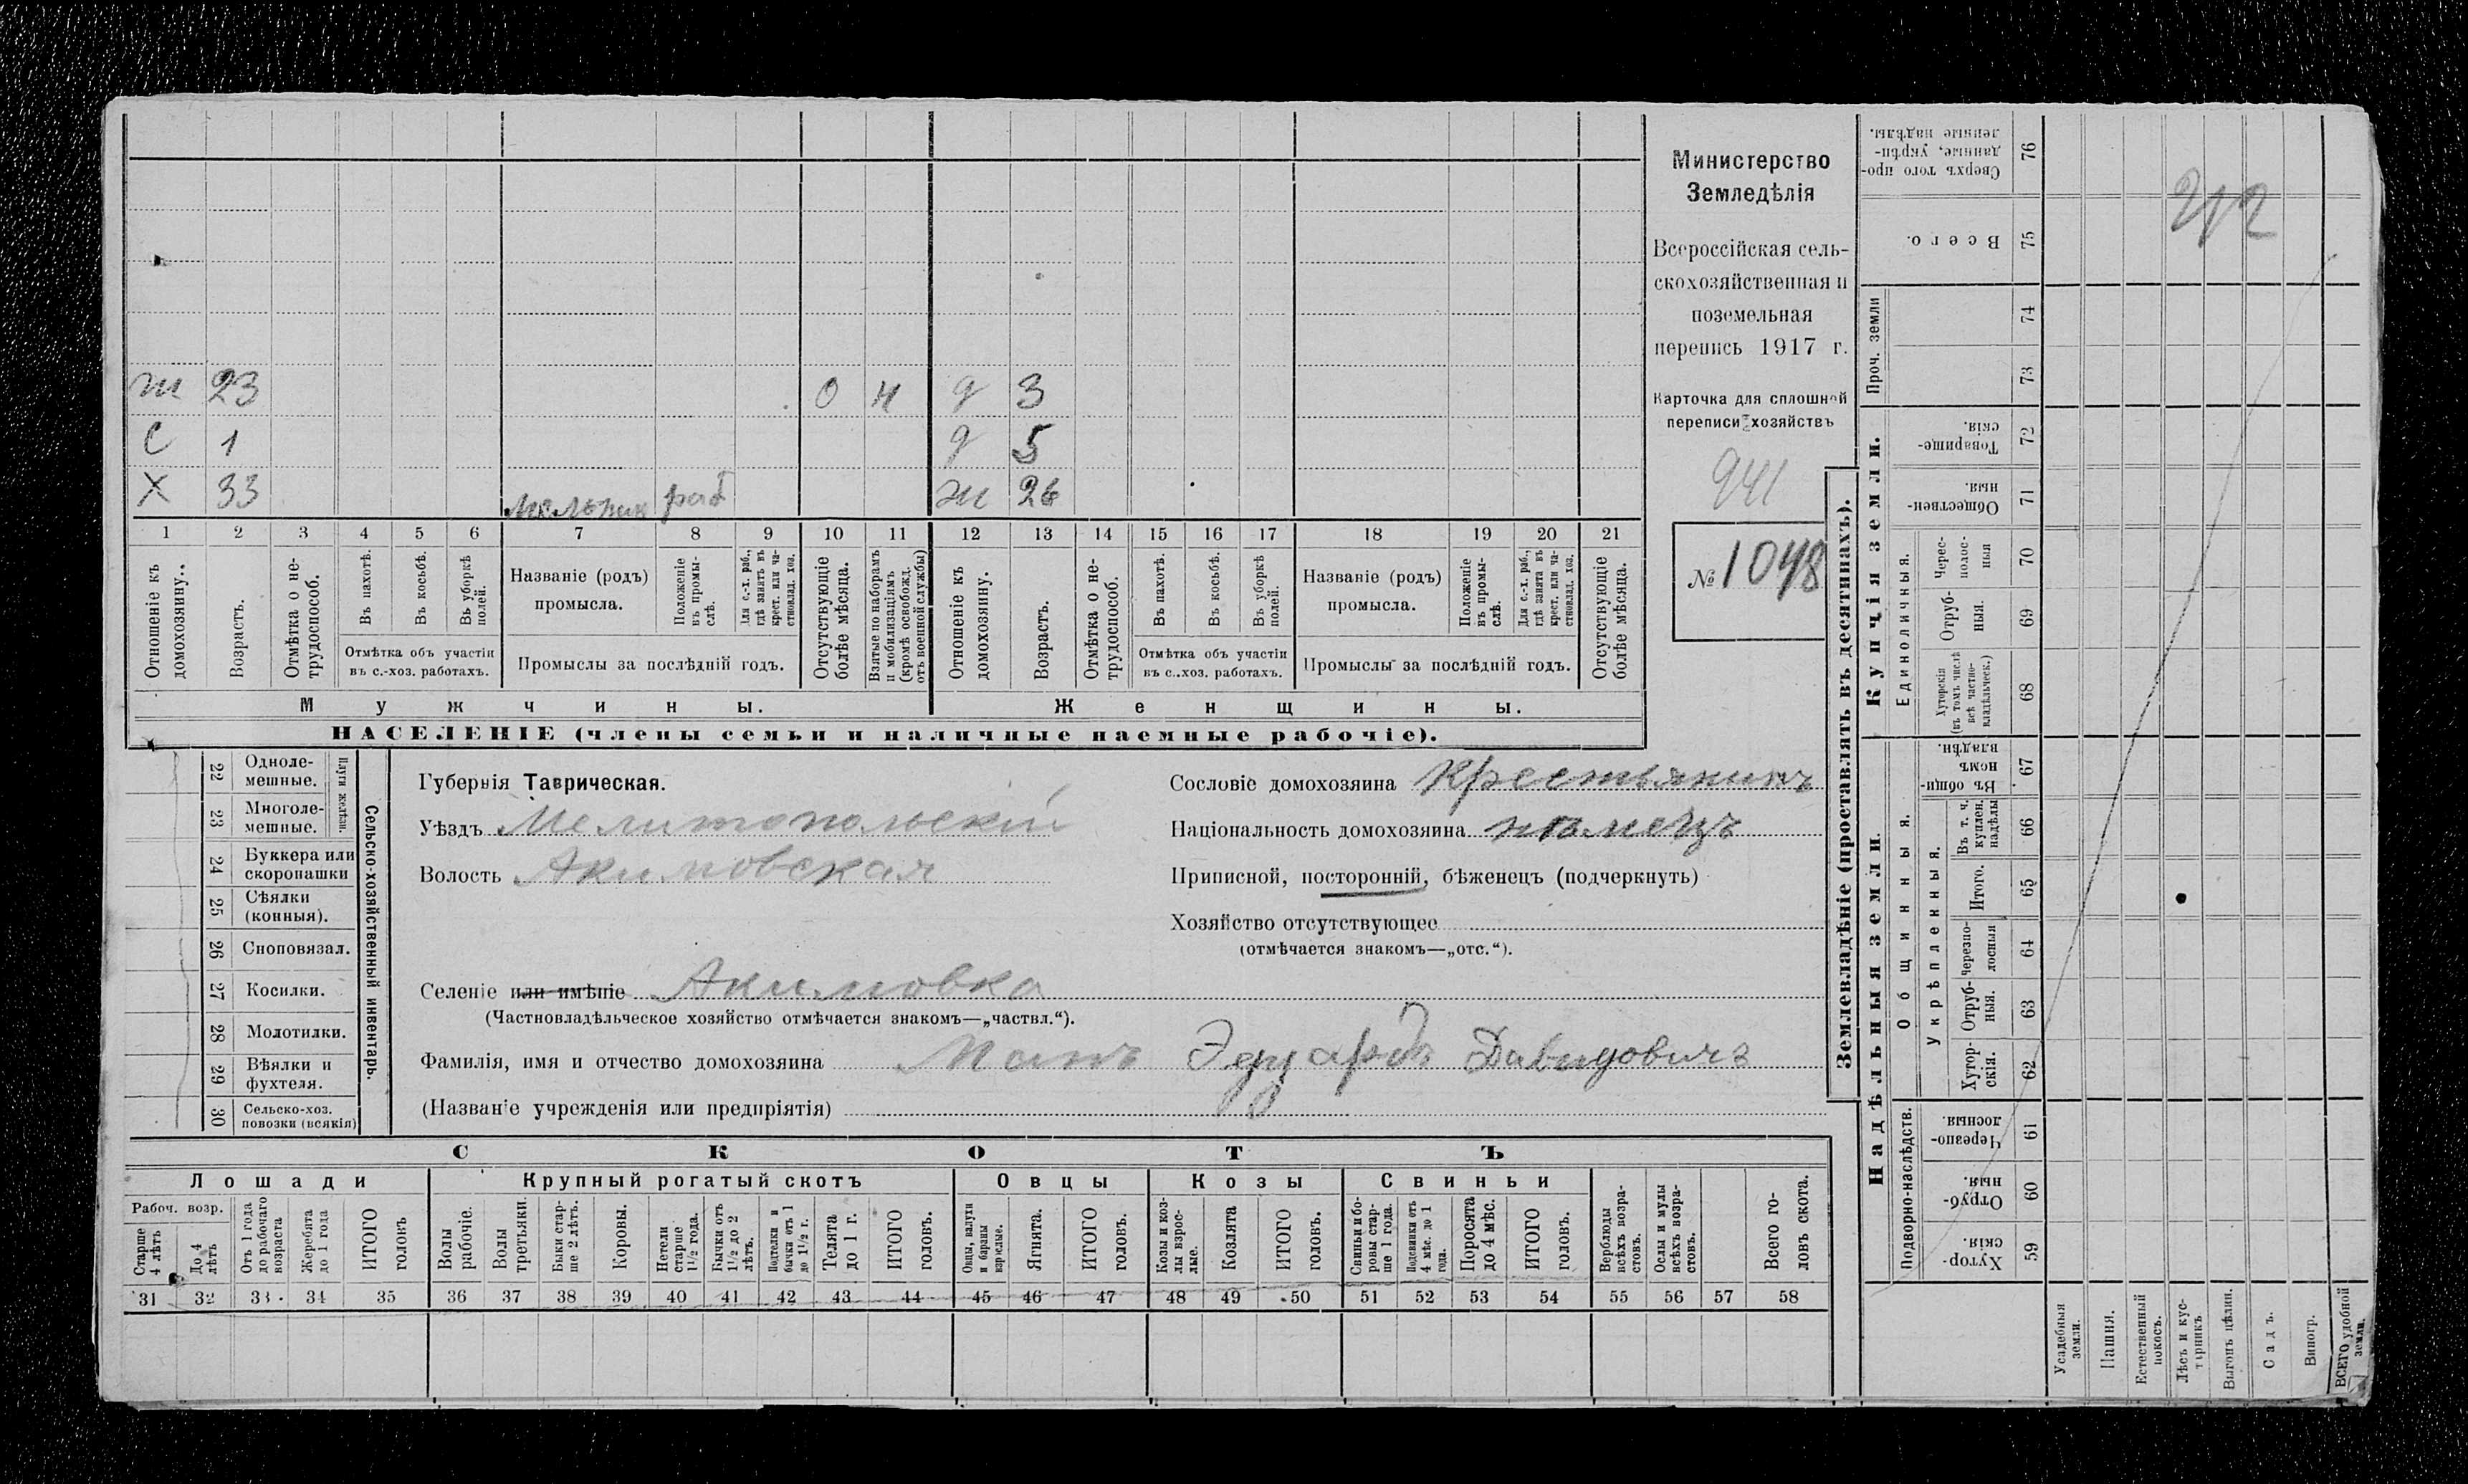 Министерство
Земледѣлія
Всероссійская сель-
скохозяйственная и
поземельная
перепись 1917 г.
Карточка для сплошной
переписи хозяйствъ
941
№ 1048
23 0 3
С 1 д 5
Х 33 мельник раб ж 26
1 2 3 4 5 6 7 8 9 10 11 12 13 14 15 16 17 18 19 20 21
Отношеніе къ домохозяину.
Возрастъ.
Отмѣтка о не-трудоспособ.
Въ пахотѣ.
Въ косьбѣ.
Въ уборкѣ полей.
Отмѣтка объ участіи
въ с.-хоз. работахъ.
Названіе (родъ)
промысла.
Положеніе въ промы-слѣ.
Для с.-х. раб., гдѣ занятъ въ крест. или ча-стновлад. хоз.
Промыслы за послѣдній годъ.
Отсутствующіе болѣе мѣсяца.
Взятые по наборамъ и мобилизаціямъ (кромѣ освобожд. отъ военной службы)
Отношеніе къ домохозяину.
Возрастъ.
Отмѣтка о не-трудоспособ.
Въ пахотѣ.
Въ косьбѣ.
Въ уборкѣ полей.
Отмѣтка объ участіи
въ с.-хоз. работахъ.
Названіе (родъ)
промысла.
Положеніе въ промы-слѣ.
Для с.-х. раб., гдѣ занята въ крест. или ча-стновлад. хоз.
Промыслы за послѣдній годъ.
Отсутствующіе болѣе мѣсяца.
Мужчины. Женщины.
НАСЕЛЕНІЕ (члены семьи и наличные наемные рабочіе).
22 Одноле-мешные.
23 Многоле-мешные.
Плуги желѣзн.
24 Буккера или скоропашки
25 Сѣялки (конныя).
26 Сноповязал.
27 Косилки.
28 Молотилки.
29 Вѣялки и фухтеля.
30 Сельско-хоз. повозки (всякія)
Сельско-хозяйственный инвентарь.
Губернія Таврическая.
Уѣздъ Мелитопольскій
Волость Акимовская
Сословіе домохозяина Крестьянинъ
Національность домохозяина нѣмецъ
Приписной, посторонній, бѣженецъ (подчеркнуть)
Хозяйство отсутствующее
(отмѣчается знакомъ—„отс.“).
Селеніе или имѣніе Акимовка
(Частновладѣльческое хозяйство отмѣчается знакомъ—„частвл.“).
Фамилія, имя и отчество домохозяина Эдуардъ Давидовичъ
(Названіе учрежденія или предпріятія)
СКОТЪ
Лошади Крупный рогатый скотъ Овцы Козы Свиньи
Рабоч. возр.
Старше 4 лѣтъ
До 4 лѣтъ
Отъ 1 года до рабочаго возраста
Жеребята до 1 года
ИТОГО головъ
Волы рабочіе.
Волы третьяки.
Быки стар-ше 2 лѣтъ.
Коровы.
Нетели старше 1½ года.
Бычки отъ 1½ до 2 лѣтъ.
Подтелки и бычки отъ 1 до 1½ г.
Телята до 1 г.
ИТОГО головъ.
Овцы, валухи и бараны взрослые.
Ягнята.
ИТОГО головъ.
Козы и коз-лы взрос-лые.
Козлята
ИТОГО головъ.
Свиньи и бо-ровы стар-ше 1 года.
Подсвинки отъ 4 мѣс. до 1 года.
Поросята до 4 мѣс.
ИТОГО головъ.
Верблюды всѣхъ возра-стовъ.
Ослы и мулы всѣхъ возра-стовъ.
Всего го-ловъ скота.
31 32 33 34 35 36 37 38 39 40 41 42 43 44 45 46 47 48 49 50 51 52 53 54 55 56 57 58
Землевладѣніе (проставлять въ десятинахъ).
Надѣльныя земли.
Купчія земли.
Проч. земли
Общинныя.
Укрѣпленныя.
Подворно-наслѣдств.
Единоличныя.
Сверхъ того про-данные, укрѣп-ленные надѣлы. 76
Всего. 75
74
73
Товарище-скія. 72
Обществен-ныя. 71
Черес-полос-ныя 70
Отруб-ныя. 69
Хуторскія (въ томъ числѣ всѣ частно-владѣльческ.) 68
Въ общин-номъ владѣн. 67
Въ т. ч. куплен. надѣлы 66
Итого. 65
Черезпо-лосныя 64
Отруб-ныя. 63
Хутор-скія. 62
Черезпо-лосныя 61
Отруб-ныя. 60
Хутор-скія. 59
Усадебныя земли.
Пашня.
Естественный покосъ.
Лѣсъ и кус-тарникъ
Выгонъ цѣлин.
Садъ.
Виногр.
ВСЕГО удобной земли.